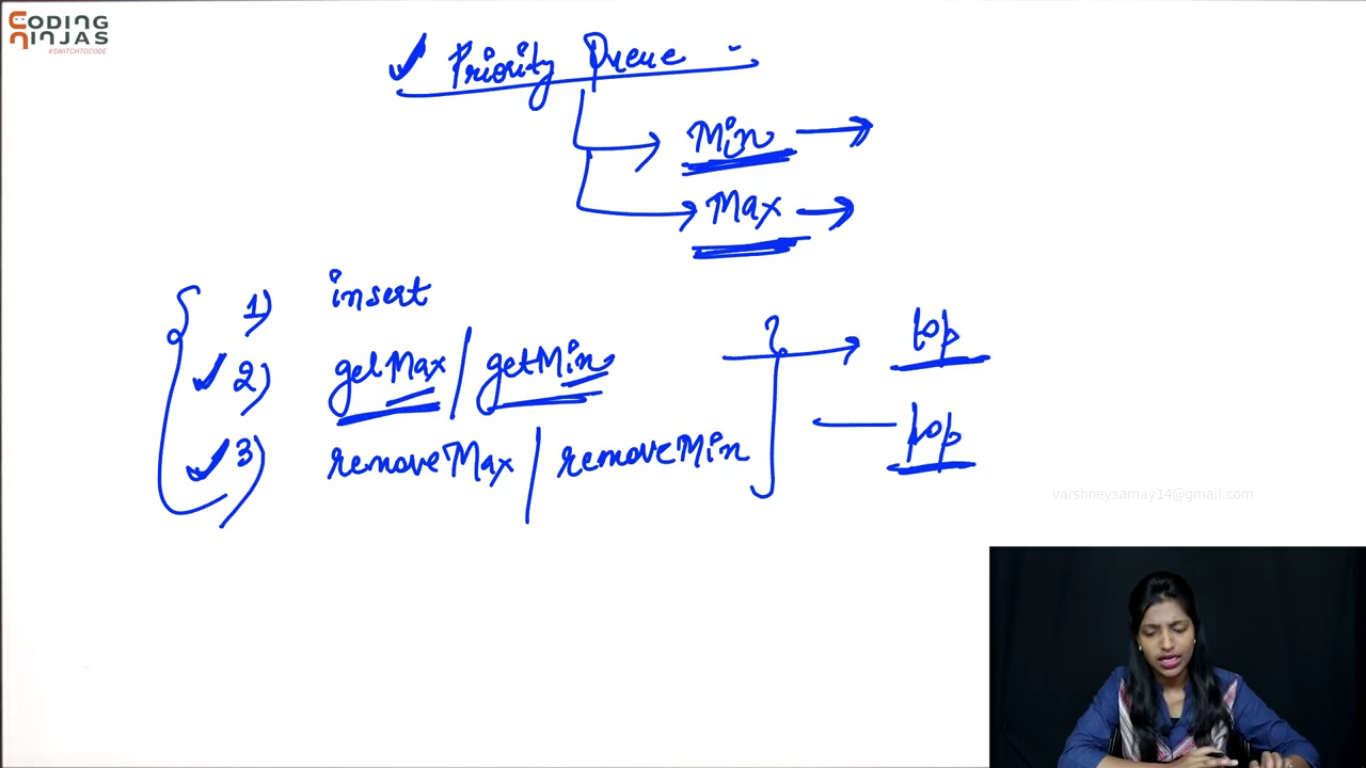 CODING
NINJAS
#SWITCHTOCODE
Priority Queue :
Min
Max
1) insert
2) getMax / getMin
top
3) removeMax / removeMin
pop
varshneysamay14@gmail.com